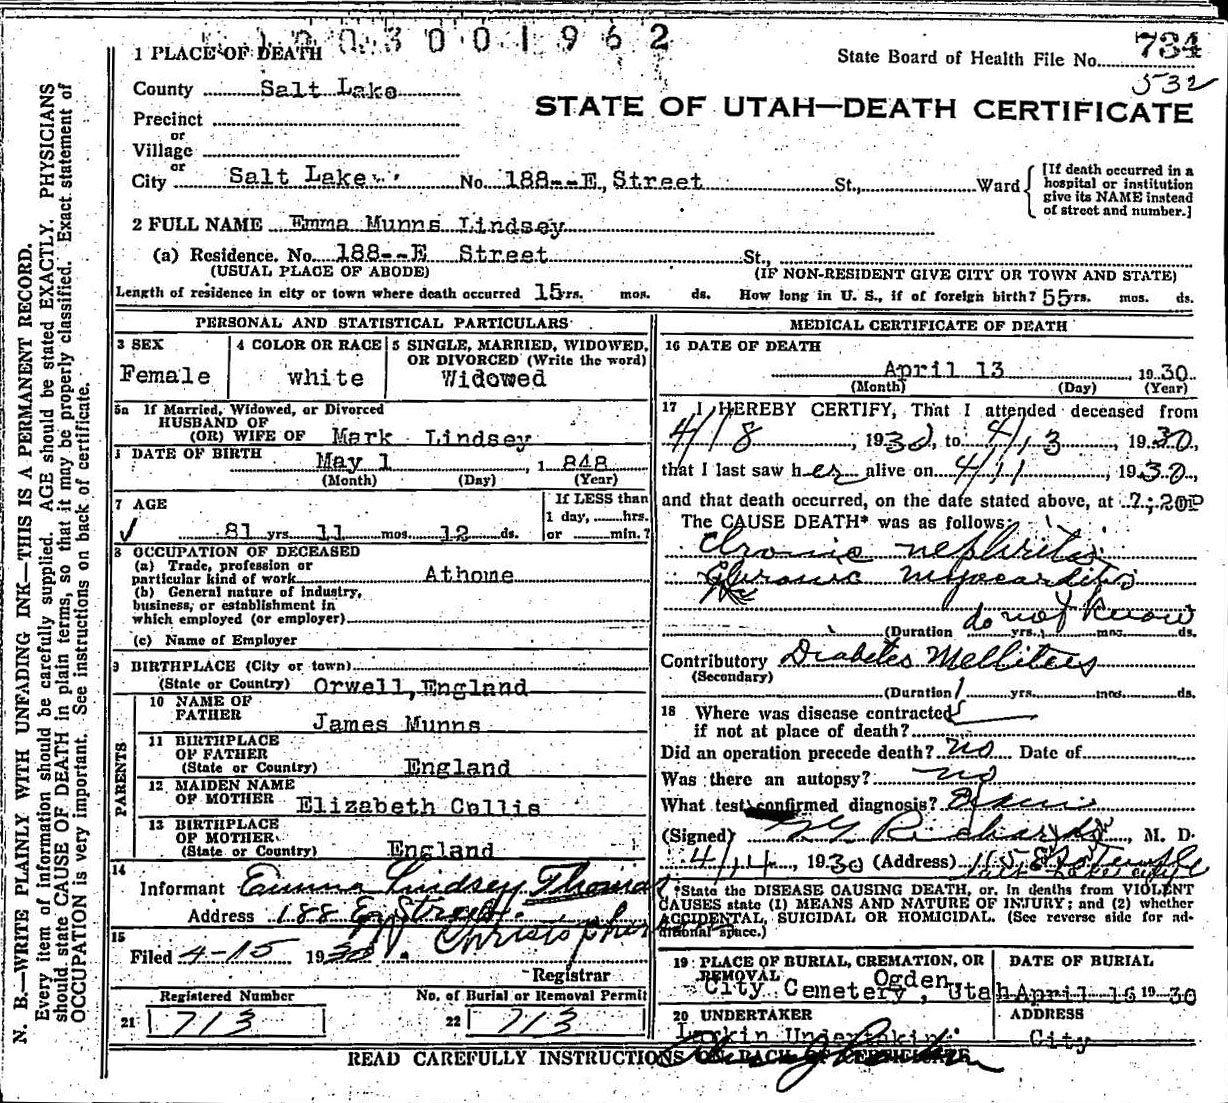 003001962
1 PLACE OF DEATH
State Board of Health File No. 734
532
County Salt Lake
STATE OF UTAH—DEATH CERTIFICATE
Precinct
or
Village
or
City Salt Lake No. 188--E, Street St., Ward
[If death occurred in a hospital or institution give its NAME instead of street and number.]
2 FULL NAME Emma Munns Lindsey
(a) Residence. No. 188--E Street St.,
(USUAL PLACE OF ABODE) (IF NON-RESIDENT GIVE CITY OR TOWN AND STATE)
Length of residence in city or town where death occurred 15 yrs. mos. ds. How long in U. S., if of foreign birth? 55 yrs. mos. ds.
PERSONAL AND STATISTICAL PARTICULARS
3 SEX
Female
4 COLOR OR RACE
white
5 SINGLE, MARRIED, WIDOWED,
OR DIVORCED (Write the word)
Widowed
5a If Married, Widowed, or Divorced
HUSBAND OF
(OR) WIFE OF Mark Lindsey
DATE OF BIRTH
May 1 , 1 848
(Month) (Day) (Year)
7 AGE
81 yrs. 11 mos. 12 ds.
If LESS than
1 day, hrs.
or min.?
8 OCCUPATION OF DECEASED
(a) Trade, profession or
particular kind of work Athome
(b) General nature of industry,
business, or establishment in
which employed (or employer)
(c) Name of Employer
9 BIRTHPLACE (City or town)
(State or Country) Orwell, England
PARENTS
10 NAME OF
FATHER James Munns
11 BIRTHPLACE
OF FATHER
(State or Country) England
12 MAIDEN NAME
OF MOTHER Elizabeth Collis
13 BIRTHPLACE
OF MOTHER
(State or Country) England
14
Informant Emma Lindsey Thomas
Address 188 E Street
15
Filed 4-15 1930
Christopherson
Registrar
Registered Number
21 713
No. of Burial or Removal Permit
22 713
MEDICAL CERTIFICATE OF DEATH
16 DATE OF DEATH
April 13 1930
(Month) (Day) (Year)
17 I HEREBY CERTIFY, That I attended deceased from
4/18, 1930, to 4/13, 1930,
that I last saw her alive on 4/11, 1930
and that death occurred, on the date stated above, at 7:20P
The CAUSE DEATH* was as follows:
Chronic nephritis
Chronic myocarditis
do not know
(Duration yrs. mos. ds.
Contributory Diabetes Mellitus
(Secondary)
(Duration yrs. mos. ds.
18 Where was disease contracted
if not at place of death?
Did an operation precede death? no Date of
Was there an autopsy? no
What test confirmed diagnosis?
(Signed) Richards, M. D.
4/14, 1930 (Address)
*State the DISEASE CAUSING DEATH, or, in deaths from VIOLENT
CAUSES state (1) MEANS AND NATURE OF INJURY; and (2) whether
ACCIDENTAL, SUICIDAL OR HOMICIDAL. (See reverse side for ad-
ditional space.)
19 PLACE OF BURIAL, CREMATION, OR
REMOVAL Ogden
City Cemetery, Utah
DATE OF BURIAL
April 16 1930
20 UNDERTAKER
Larkin Undertakin
ADDRESS
City
READ CAREFULLY INSTRUCTIONS ON BACK OF CERTIFICATE
N. B.—WRITE PLAINLY WITH UNFADING INK—THIS IS A PERMANENT RECORD.
Every item of information should be carefully supplied. AGE should be stated EXACTLY. PHYSICIANS
should state CAUSE OF DEATH in plain terms, so that it may be properly classified. Exact statement of
OCCUPATION is very important. See instructions on back of certificate.